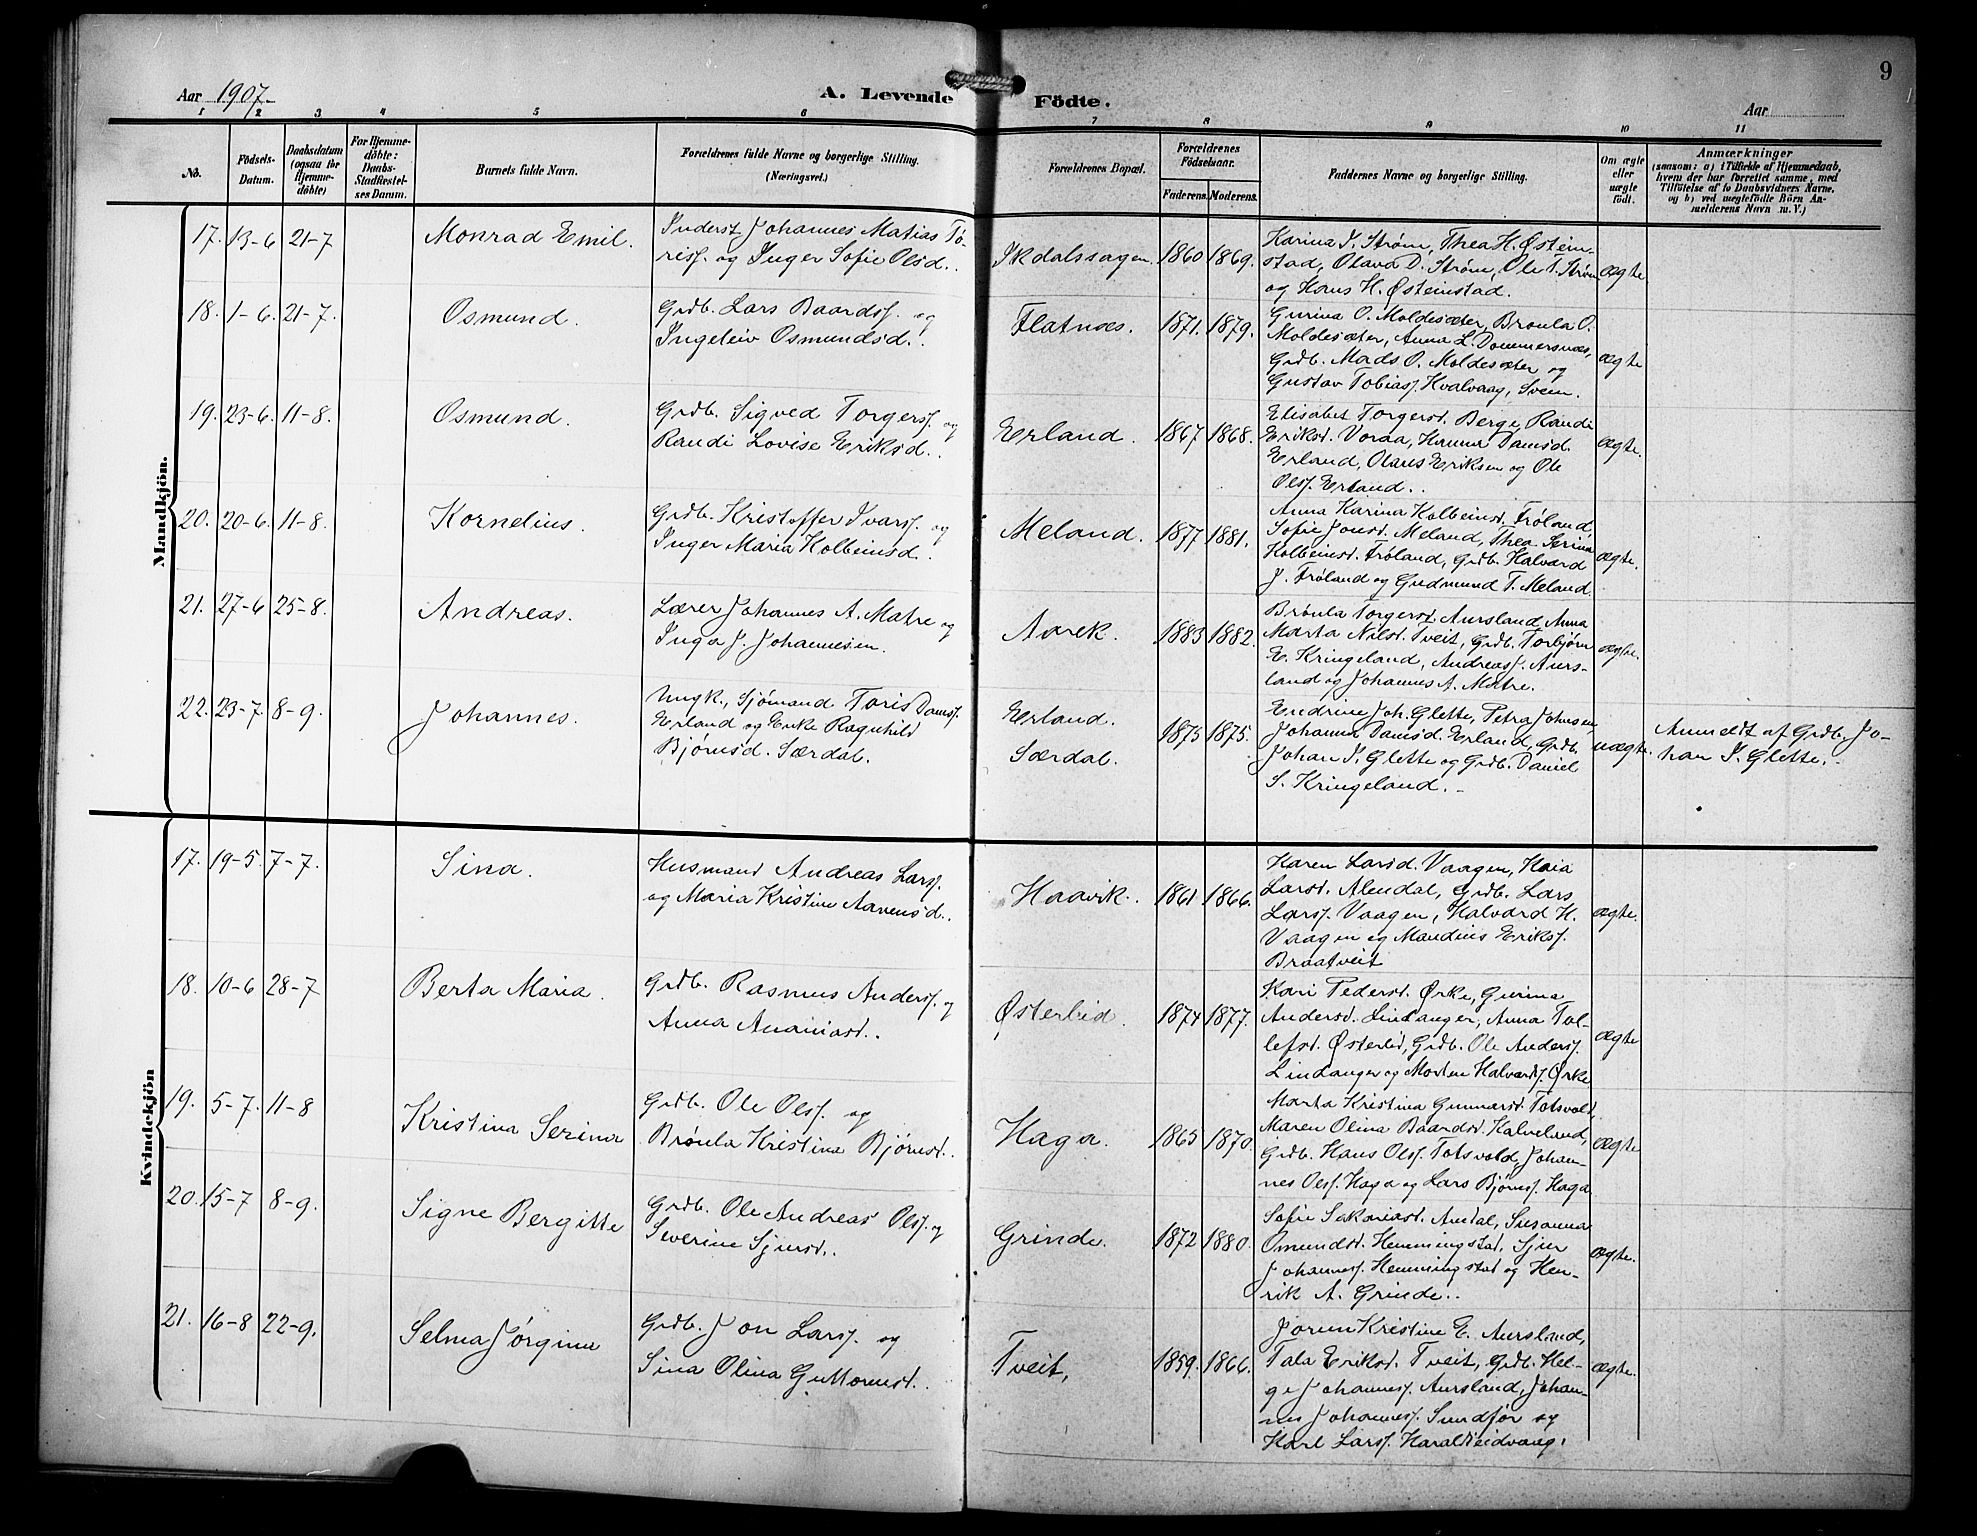 9
Aar 1907.
A. Levende Födte.
Aar
1 2 3 4 5 6 7 8 9 10 11
No.
Födsels-
Datum.
Daabsdatum
(ogsaa for
Hjemme-
döbte)
For Hjemme-
döbte:
Daabs-
Stadfæstel-
ses Datum.
Barnets fulde Navn.
Forældrenes fulde Navne og borgerlige Stilling.
(Næringsvei.)
Forældrenes Bopæl.
Forældrenes
Födselsaar.
Faderens. Moderens.
Faddernes Navne og borgerlige Stilling.
Om ægte
eller
uægte
födt.
Anmærkninger
(saasom: a) i Tilfælde af Hjemmedaab,
hvem der har forrettet samme, med
Tilföielse af to Daabsvidners Navne,
og b) ved uægtefödte Börn An-
melderens Navn m. V.)
Mandkjön.
17. 13-6 21-7
Monrad Emil.
Inderst Johannes Matias Tø-
risf. og Inger Sofie Olsd..
Ikdalssagen.
1860 1869.
Karina I. Strøm, Thea H. Østein-
stad, Olava D. Strøm, Ole T. Strøm
og Hans H. Østeinstad.
ægte
18. 1-6. 21-7.
Osmund.
Grdb. Lars Baardsf. og
Ingeleiv Osmundsd..
Flatnæs.
1871. 1879.
Gurina O. Moldesæter, Brønla O.
Moldesæter, Anna L. Dommersnæs,
Grdb. Mads O. Moldesæter og
Gustav Tobiasf. Kvalvaag, Sveen.
ægte
19. 23-6. 11-8.
Osmund.
Grdb. Sigved Torgersf. og
Randi Lovise Eriksd..
Erland.
1867 1868.
Elisabet Torgersd. Berge, Randi
Eriksd. Voraa, Hanna Damsd.
Erland, Olaus Eriksen og Ole
Olsf. Erland..
ægte.
20. 20-6. 11-8.
Kornelius.
Grdb. Kristoffer Ivarsf. og
Inger Maria Kolbeinsd.
Meland.
1877 1881.
Anna Karina Kolbeinsd. Frøland,
Sofie Jonsd. Meland, Thea Serina
Kolbeinsd. Frøland, Grdb. Halvard
J. Frøland og Gudmund T. Meland
ægte.
21. 27-6 25-8.
Andreas.
Lærer Johannes A. Matre og
Inga J. Johannesen.
Aarek.
1883 1882.
Brønla Torgersd. Aursland, Anna
Marta Nilsd. Tveit, Grdb. Torbjørn
E. Kringeland, Andreas J. Aurs-
land og Johannes A. Matre.
ægte.
22. 23-7 8-9.
Johannes.
Ungk., Sjømand Toris Damsf.
Erland og Enke Ragnhild
Bjørnsd. Særdal.
Erland.
Særdal.
1875 1875.
Endrine Joh. Glette, Petra Johnsen,
Johanna Damsd. Erland, Grdb.
Johan I. Glette og Grdb. Daniel
S. Kringeland.
uægte.
Anmeldt af Grdb. Jo-
han I. Glette.
Kvindekjön
17. 19-5. 7-7.
Sina.
Husmand Andreas Larsf.
og Maria Kristine Aanensd..
Haavik.
1861 1866.
Karen Larsd. Vaagen, Kaia
Larsd. Alendal, Grdb. Lars
Larsf. Vaagen, Halvard H.
Vaagen og Mandius Eriksf.
Braatveit
ægte.
18. 10-6 28-7
Berta Maria.
Grdb. Rasmus Andersf. og
Anna Ananiasd..
Østerlid.
1874 1877.
Kari Pedersd. Ørke, Gurina
Andersd. Lindanger, Anna Tol-
lefsd. Østerlid, Grdb. Ole Andersf.
Lindanger og Morten Halvardsf. Ørke
ægte
19. 5-7. 11-8
Kristina Serina
Grdb. Ole Olsf. og
Brønla Kristina Bjørnsd..
Haga.
1865 1870.
Marta Kristina Gunnarsd. Totsvold,
Maren Olina Baardsd. Halveland,
Grdb. Hans Olsf. Totsvold, Johan-
nes Olsf. Haga og Lars Bjørnsf. Haga
ægte
20. 15-7 8-9.
Signe Bergitte
Grdb. Ole Andreas Olsf. og
Severine Sjursd..
Grinde.
1872 1880.
Sofie Sakariasd. Andal, Susanna
Omundsd. Hemmingstad, Sjur
Johannesf. Hemmingstad og Hen-
rik A. Grinde..
ægte.
21. 16-8 22-9.
Selma Jørgina
Grdb. Jon Larsf. og
Sina Olina Guttormsd..
Tveit,
1859. 1866.
Jorun Kristine E. Aursland,
Tala Eriksd. Tveit, Grdb. Hel-
ge Johannesf. Aursland, Johan-
nes Johannesf. Sundfør og
Karl Larsf. Haraldseidvaag.
ægte.